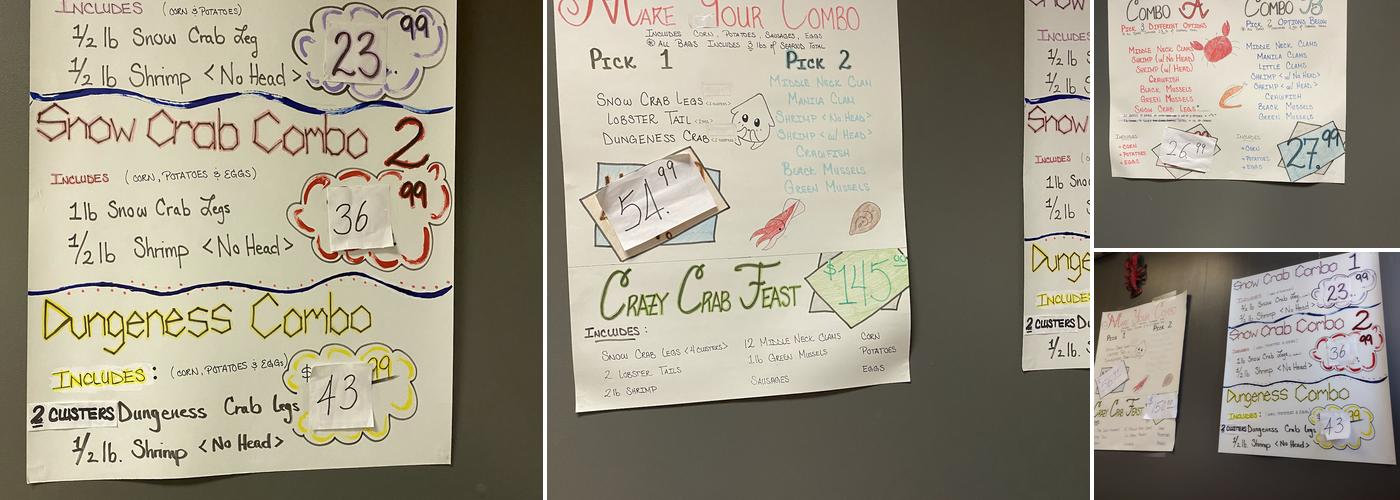 INCLUDES (CORN & POTATOES)
1/2 lb Snow Crab Leg
1/2 lb Shrimp <No Head>
23.99
Snow Crab Combo 2
INCLUDES (CORN, POTATOES & EGGS)
1lb Snow Crab Legs
1/2 lb Shrimp <No Head>
36 99
Dungeness Combo
INCLUDES: (CORN, POTATOES & EGGS)
2 CLUSTERS Dungeness Crab legs
1/2 lb. Shrimp <No Head>
$43 99
MAKE YOUR COMBO
INCLUDES CORN, POTATOES, SAUSAGES, EGGS
ALL BAGS INCLUDES 3 lbs OF SEAFOOD TOTAL
PICK 1
SNOW CRAB LEGS
LOBSTER TAIL
DUNGENESS CRAB
54.99
PICK 2
MIDDLE NECK CLAM
MANILA CLAM
SHRIMP <NO HEAD>
SHRIMP <W/ HEAD>
CRAWFISH
BLACK MUSSELS
GREEN MUSSELS
CRAZY CRAB FEAST
$145
INCLUDES:
SNOW CRAB LEGS <4 CLUSTERS>
2 LOBSTER TAILS
2lb SHRIMP
12 MIDDLE NECK CLAMS
1lb GREEN MUSSELS
SAUSAGES
CORN
POTATOES
EGGS
Snow
INCLUDES
1lb Sno
1/2 lb S
Dunge
INCLUDES
2 CLUSTERS Du
1/2 lb.
COMBO A
PICK 3 DIFFERENT OPTIONS
MIDDLE NECK CLAMS
SHRIMP (W/ NO HEAD)
SHRIMP (W/ HEAD)
CRAWFISH
BLACK MUSSELS
GREEN MUSSELS
SNOW CRAB LEGS
INCLUDES
CORN
POTATOES
EGGS
26.99
COMBO B
PICK 2 OPTIONS BELOW
MIDDLE CLAMS
MANILA CLAMS
LITTLE CLAMS
SHRIMP <W/ NO HEAD>
SHRIMP <W/ HEAD>
CRAWFISH
BLACK MUSSELS
GREEN MUSSELS
INCLUDES
CORN
POTATOES
EGGS
27.99
MAKE YOUR COMBO
PICK 1
PICK 2
CRAZY CRAB FEAST
Snow Crab Combo 1
23.99
Snow Crab Combo 2
36 99
Dungeness Combo
INCLUDES:
2 CLUSTERS Dungeness Crab legs
1/2 lb. Shrimp <No Head>
43